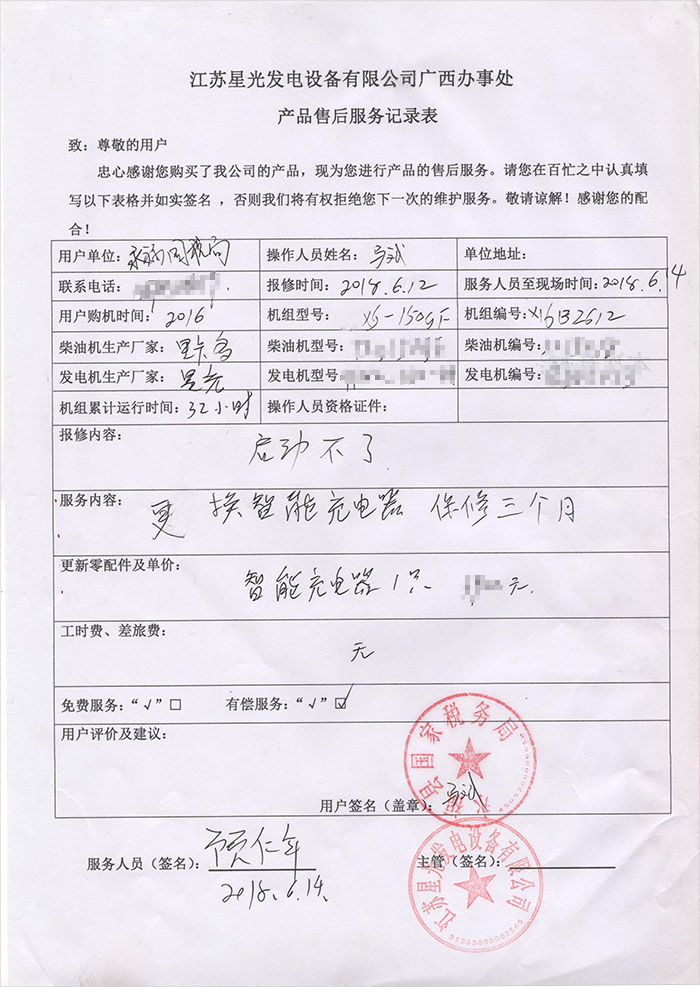 江苏星光发电设备有限公司广西办事处
产品售后服务记录表
致：尊敬的用户
忠心感谢您购买了我公司的产品，现为您进行产品的售后服务。请您在百忙之中认真填
写以下表格并如实签名，否则我们将有权拒绝您下一次的维护服务。敬请谅解！感谢您的配
合！
用户单位：永福国税局 操作人员姓名： 单位地址：
联系电话： 报修时间：2018.6.12 服务人员至现场时间：2018.6.14
用户购机时间：2016 机组型号：XS-150GF 机组编号：
柴油机生产厂家： 柴油机型号： 柴油机编号：
发电机生产厂家：星光 发电机型号： 发电机编号：
机组累计运行时间：32小时 操作人员资格证件：
报修内容：
启动不了
服务内容：
更换智能充电器 保修三个月
更新零配件及单价：
智能充电器1只 元
工时费、差旅费：
无
免费服务：“√”□ 有偿服务：“√”☑
用户评价及建议：
永福县国家税务局
用户签名（盖章）：
服务人员（签名）：贾仁年 主管（签名）：
2018.6.14
江苏星光发电设备有限公司